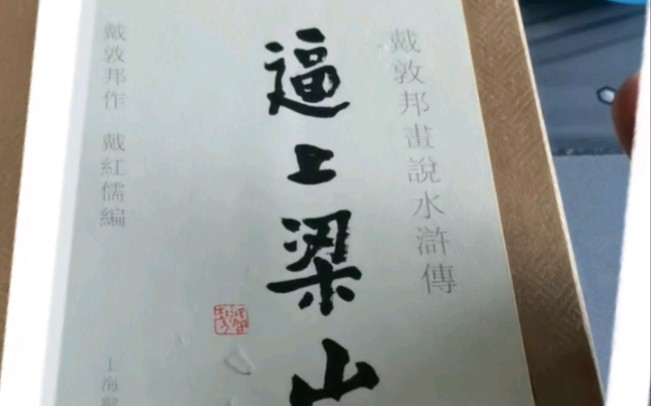 戴敦邦畫說水滸傳
逼上梁山
戴敦邦作 戴紅儒編
上海